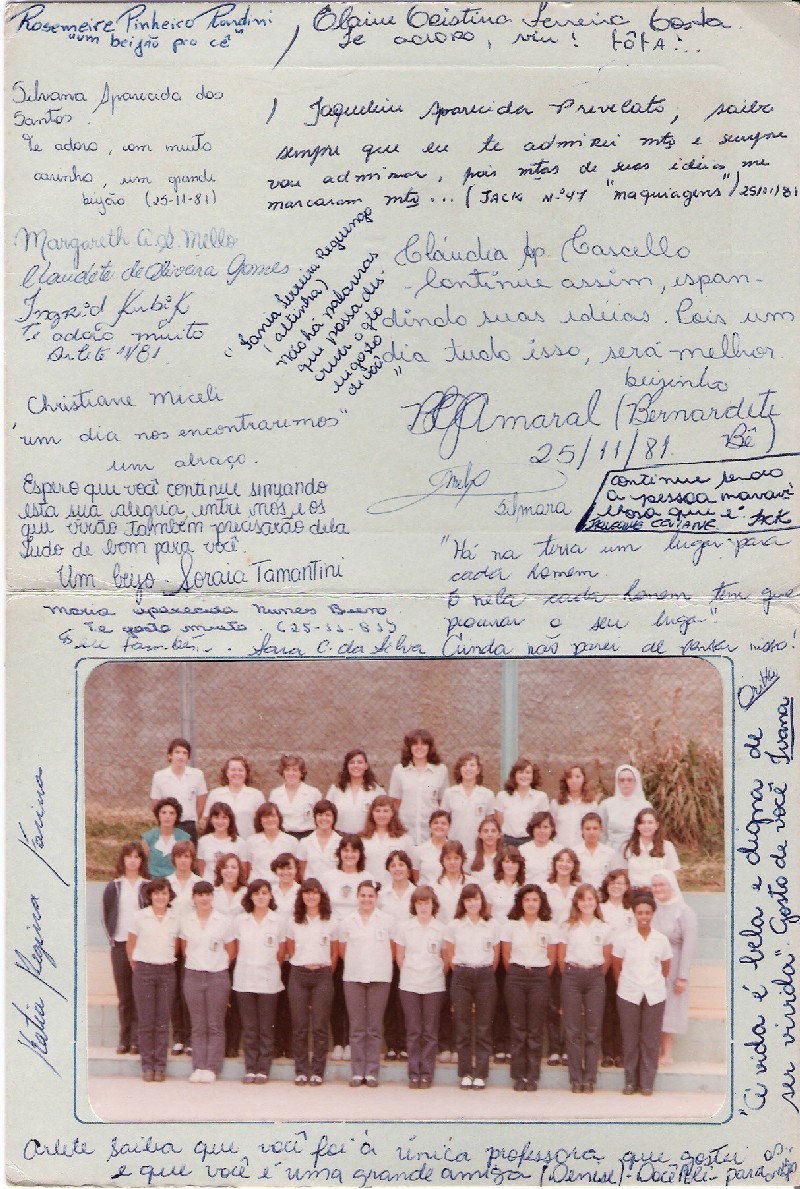 Rosemeire Pinheiro Rondini
"um beijão pro cê"
Elaine Cristina Ferreira Costa.
Te adoro, viu! tôta!..
Silvana Aparecida dos
Santos.
Te adoro, com muito
carinho, um grande
beijão (25-11-81)
Jaqueline Aparecida Prevelato, saiba
sempre que eu te admirei mto e sempre
vou admirar, pois mtas de suas idéias me
marcaram mto... (JACK Nº 47 "maquiagens") 25/11/81
Margareth A. S. Mello
Claudete de Oliveira Gomes
Ingrid Kubik
Te adoão muito
Arlete 11/81.
"Tania Ferreira Reguengo
(altinha)
não há palavras
que possa des-
crever o qto
gosto
de você"
Cláudia Ap. Cascello
Continue assim, espan-
dindo suas idéias. Pois um
dia tudo isso, será melhor.
beijinho
Christiane Miceli
"um dia nos encontraremos"
um abraço.
Amaral (Bernardete
Bê)
25/11/81.
Silmara
Continue sendo
a pessoa maravi-
lhosa que é
JACK
Espero que você continue
esta sua alegria, entre nós, e os
que virão também precisarão dela
Tudo de bom para você.
Um beijo - Soraia Tamantini
"Há na terra um lugar para
cada homem.
E nela cada homem tem que
procurar o seu lugar".
Maria Aparecida Nunes Bueno.
Te gosto muito. (25-11-81)
Eu também.. Sara C. da Silva
não parei de pensar nisso!
Katia Regina Farina
"A vida é bela e digna de
ser vivida". Gosto de você Ivana
Arlete saiba que você foi à única professora que gostei
e que você é uma grande amiga (Denise)